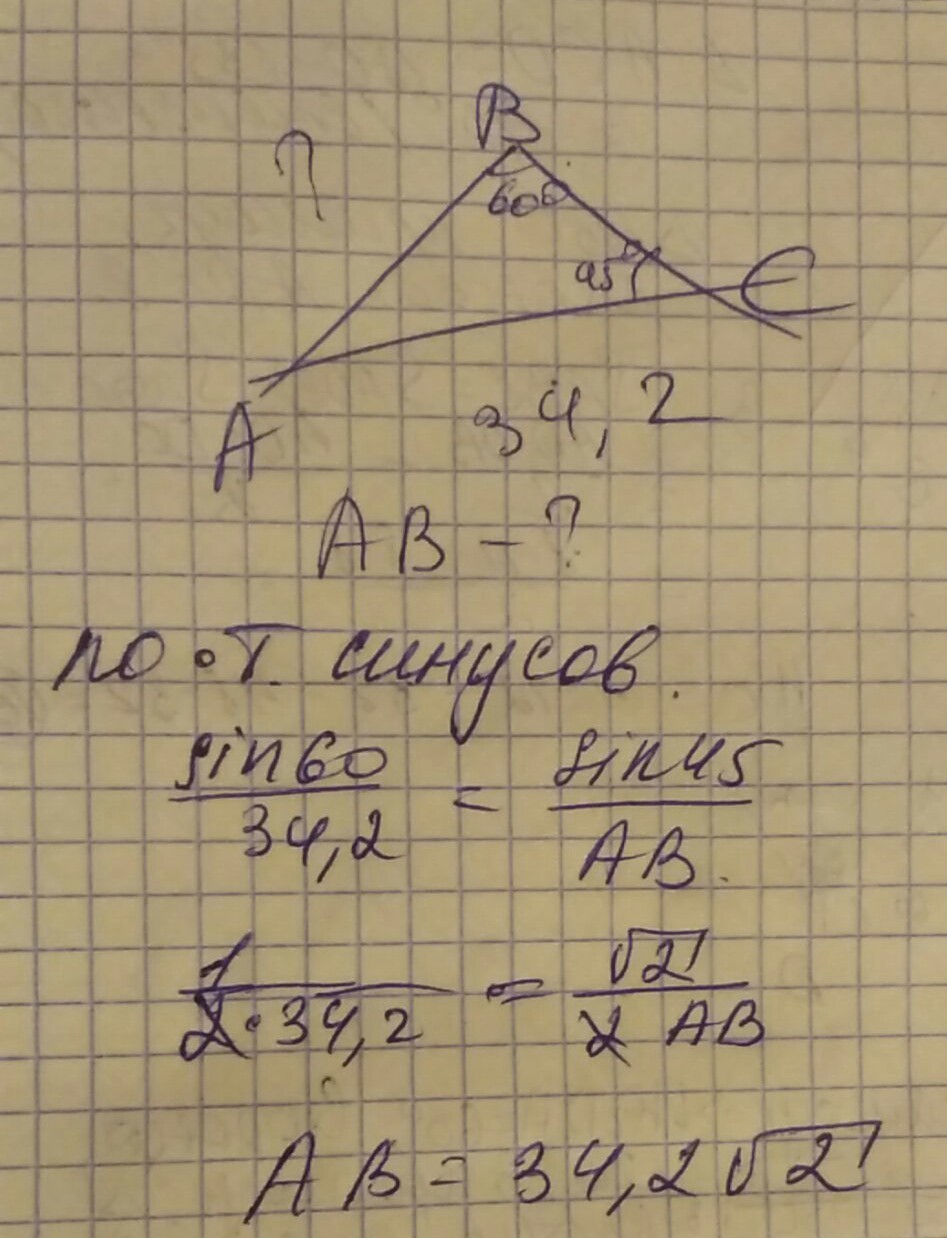 B
?
60°
45°
C
A
34,2
AB - ?
по т. синусов.
sin60 / 34,2 = sin45 / AB.
1 / 2·34,2 = √2 / 2 AB
AB = 34,2√2